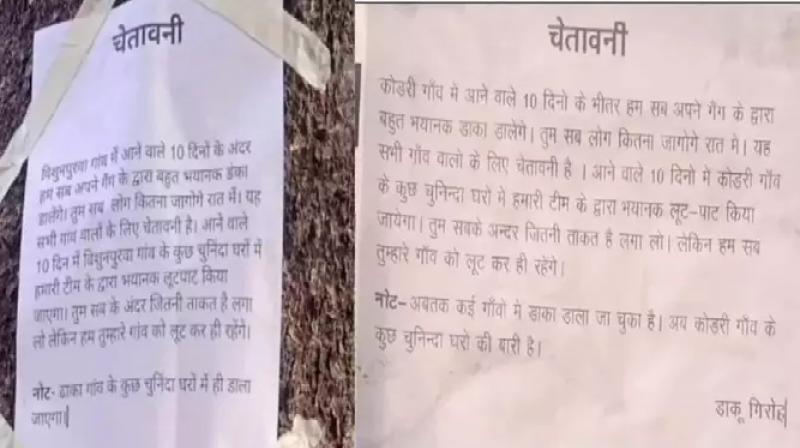 चेतावनी
बिशुनपुरवा गांव में आने वाले 10 दिनों के अंदर
हम सब अपने गैंग के द्वारा बहुत भयानक डंका
डालेंगे। तुम सब लोग कितना जागोगे रात में। यह
सभी गांव वालों के लिए चेतावनी है। आने वाले
10 दिन में बिशुनपुरवा गांव के कुछ चुनिंदा घरों में
हमारी टीम के द्वारा भयानक लूटपाट किया
जाएगा। तुम सब के अंदर जितनी ताकत है लगा
लो लेकिन हम तुम्हारे गांव को लूट कर ही रहेंगे।
नोट- डाका गांव के कुछ चुनिंदा घरों में ही डाला
जाएगा
चेतावनी
कोडरी गाँव मे आने वाले 10 दिनो के भीतर हम सब अपने गैंग के द्वारा
बहुत भयानक डाका डालेगे। तुम सब लोग कितना जागोगे रात मे। यह
सभी गाँव वालो के लिए चेतावनी है । आने वाले 10 दिनो मे कोडरी गाँव
के कुछ चुनिन्दा घरो मे हमारी टीम के द्वारा भयानक लूट-पाट किया
जायेगा। तुम सबके अन्दर जितनी ताकत है लगा लो। लेकिन हम सब
तुम्हारे गाँव को लूट कर ही रहेंगे।
नोट– अबतक कई गाँवो मे डाका डाला जा चुका है। अब कोडरी गाँव के
कुछ चुनिन्दा घरो की बारी है।
डाकू गिरोह